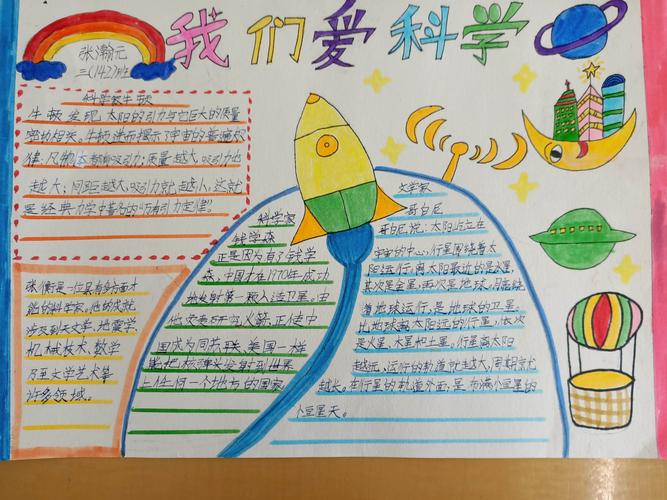 我们爱科学
张瀚元
三(142)班
科学家牛顿
牛顿发现太阳的引力与它巨大的质量
密切相关。牛顿进而揭示了宇宙的普遍规
律：凡物体都有吸引力；质量越大，吸引力也
越大；间距越大，吸引力就越小。这就
是经典力学中著名的“万有引力定律”。
张衡是一位具有多方面才
能的科学家。他的成就
涉及到天文学、地震学、
机械技术、数学
乃至文学艺术等
许多领域。
科学家
钱学森
正是因为有了钱学
森，中国才在1970年成功
地发射第一颗人造卫星。由
他 研究 火箭，正使中
国成为同苏联、美国一样
能把核弹头发射到世界
上任何一个地方的国家
天文学家
哥白尼
哥白尼说：太阳屹立在
宇宙的中心，行星围绕着太
阳运行，离太阳最近的是水星，
其次是金星，再次是地球，月球绕
着地球运行，是地球的卫星。
比地球离太阳远的行星，依次
是火星、木星和土星。行星离太阳
越远，运行的轨道就越大，周期就
越长，在行星的轨道外面，是布满小恒星的
小恒星天。